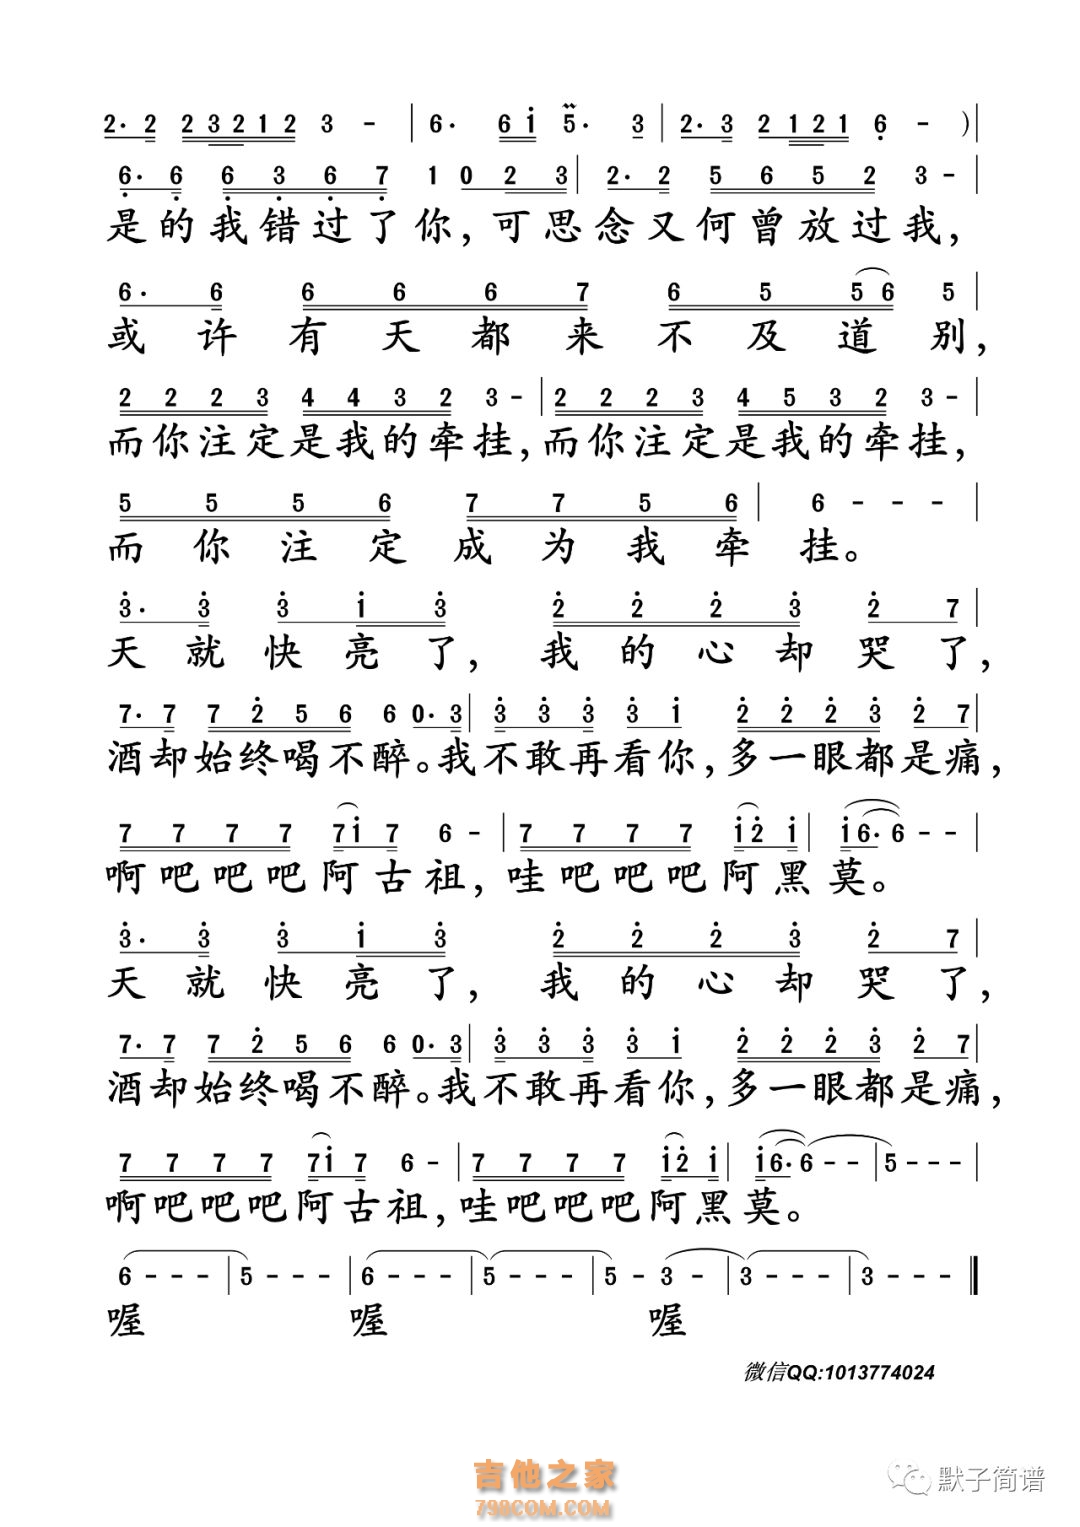 2· 2 2 3 2 1 2 3 - | 6· 6 i 5· 3 | 2· 3 2 1 2 1 6 - )|
6· 6 6 3 6 7 1 0 2 3 | 2· 2 5 6 5 2 3 - |
是的我错过了你,可思念又何曾放过我,
6· 6 6 6 6 7 6 5 5 6 5 |
或许有天都来不及道别,
2 2 2 3 4 4 3 2 3 - | 2 2 2 3 4 5 3 2 3 - |
而你注定是我的牵挂,而你注定是我的牵挂,
5 5 5 6 7 7 5 6 | 6 - - - |
而你注定成为我牵挂。
3· 3 3 i 3 2 2 2 3 2 7 |
天就快亮了,我的心却哭了,
7· 7 7 2 5 6 6 0· 3 | 3 3 3 3 i 2 2 2 3 2 7 |
酒却始终喝不醉。我不敢再看你,多一眼都是痛,
7 7 7 7 7 i 7 6 - | 7 7 7 7 i 2 i | i 6· 6 - - |
啊吧吧吧阿古祖,哇吧吧吧阿黑莫。
3· 3 3 i 3 2 2 2 3 2 7 |
天就快亮了,我的心却哭了,
7· 7 7 2 5 6 6 0· 3 | 3 3 3 3 i 2 2 2 3 2 7 |
酒却始终喝不醉。我不敢再看你,多一眼都是痛,
7 7 7 7 7 i 7 6 - | 7 7 7 7 i 2 i | i 6· 6 - - | 5 - - - |
啊吧吧吧阿古祖,哇吧吧吧阿黑莫。
6 - - - | 5 - - - | 6 - - - | 5 - - - | 5 - 3 - | 3 - - - | 3 - - - ‖
喔 喔 喔
微信QQ:1013774024
吉他之家
798COM.COM
默子简谱